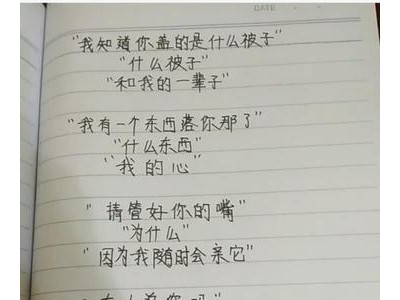 DATE
"我知道你盖的是什么被子"
"什么被子"
"和我的一辈子"
"我有一个东西落你那了"
"什么东西"
"我的心"
"请管好你的嘴"
"为什么"
"因为我随时会亲它"